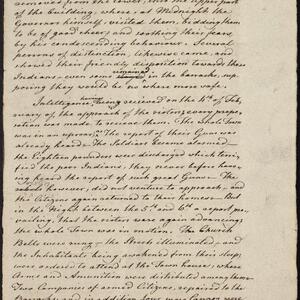 removed from the lower, into the upper part
of the building, where, at Midnight the
Governor himself, visited them, bidding them
to be of good cheer; and soothing their fears,
by his condescending behaviour. Several
persons of distinction, likewise came, and
showed their friendly disposition towards these
Indians, even some remained in the barracks, sup-
posing they would be no where more safe.
Intelligence having being received on the 4th of Feb-
ruary of the approach of the rioters, every prepa-
ration was made to receive them. The whole Town
was in an uproar. The report of their Guns was
already heard. The Soldiers became alarmed—
the Eighteen pounders were discharged which terri-
fied the poor Indians, they never before having
heard the report of such great Guns. The
whole however, did not venture to approach, and
the Citizens again returned to their homes. But
in the Night between the 5th and 6th a report pre-
vailing, that the rioters was again advancing,
the whole Town was in motion. The Church
Bells were rung— the Streets illuminated, and
the Inhabitants being awakened from their sleep,
were ordered to attend at the Town house, where
Arms and Ammunition was distributed among them.
Two Companies of armed Citizens, repaired to the
Barracks, and in addition four Canon were